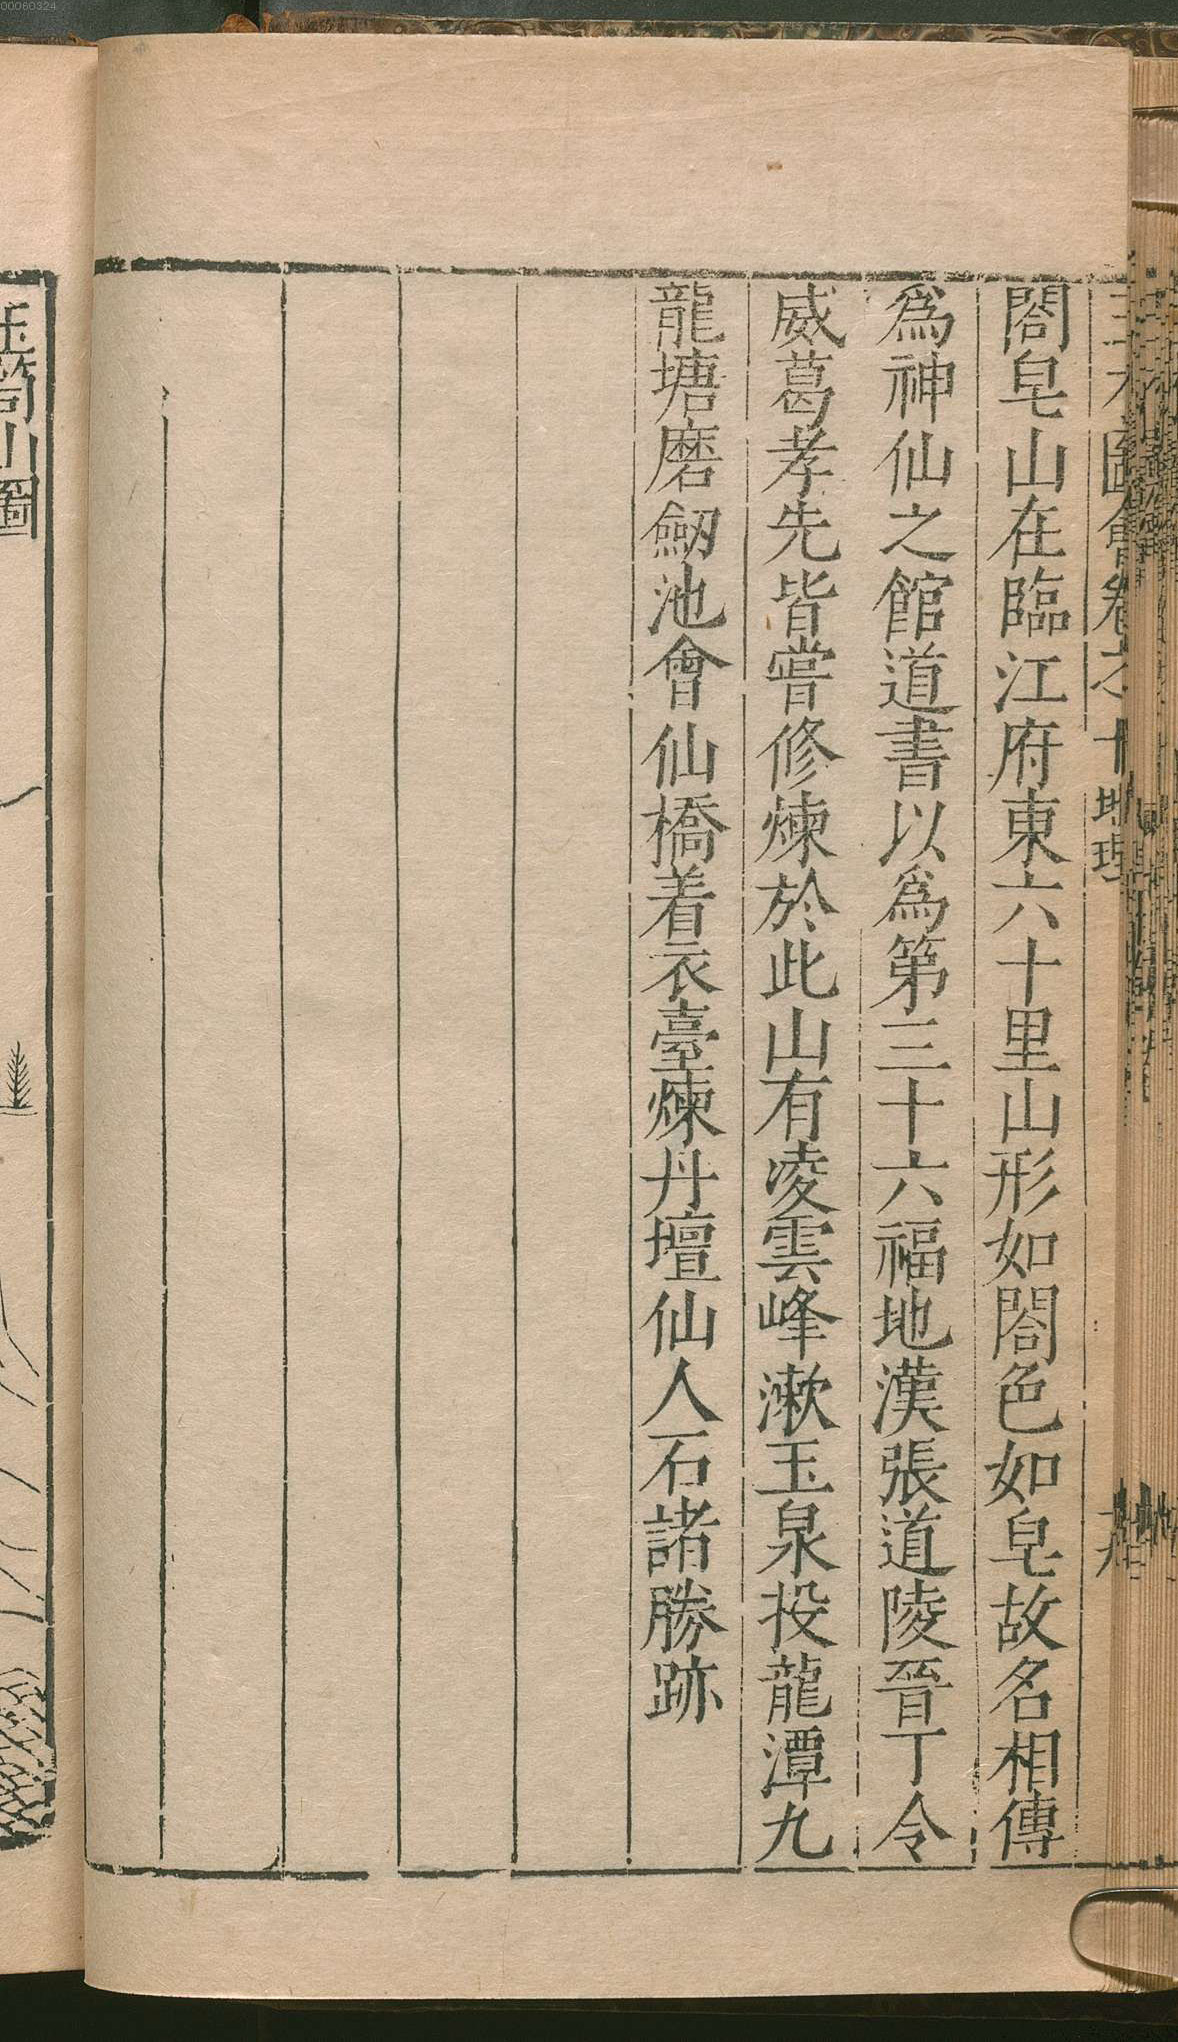 三才圖會卷之十地理
閤皂山在臨江府東六十里山形如閤色如皂故名相傳
爲神仙之館道書以爲第三十六福地漢張道陵晉丁令
威葛孝先皆嘗修煉於此山有凌雲峰漱玉泉投龍潭九
龍塘磨劒池會仙橋着衣臺煉丹壇仙人石諸勝跡
玉笥山圖
00060324